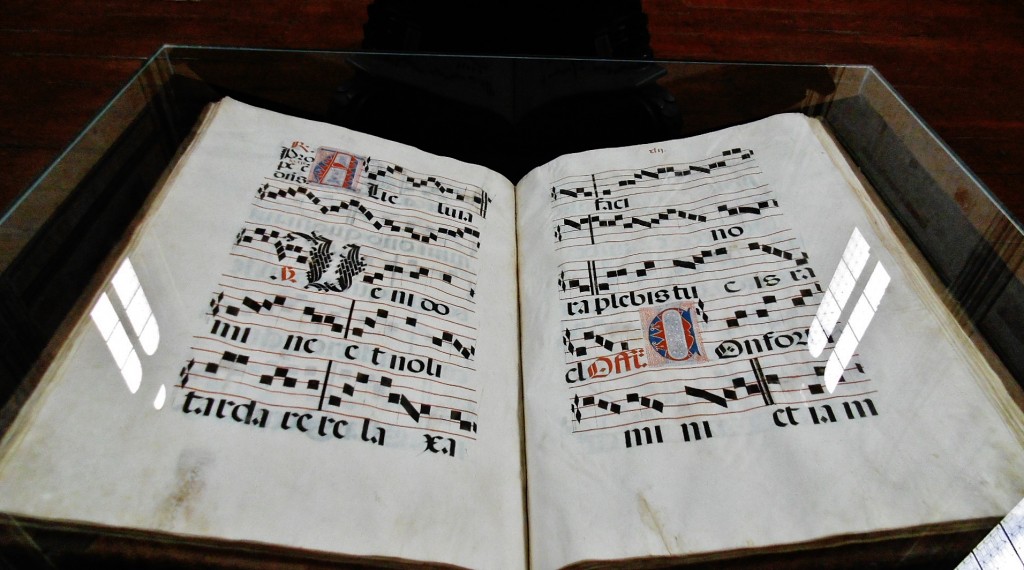 Pro
A lle luia
V e ni do
mi ne e t noli
tarda re re la xa
faci
no
ra plebis tu e is ra
el Off C Onforta
mi ni et ia m